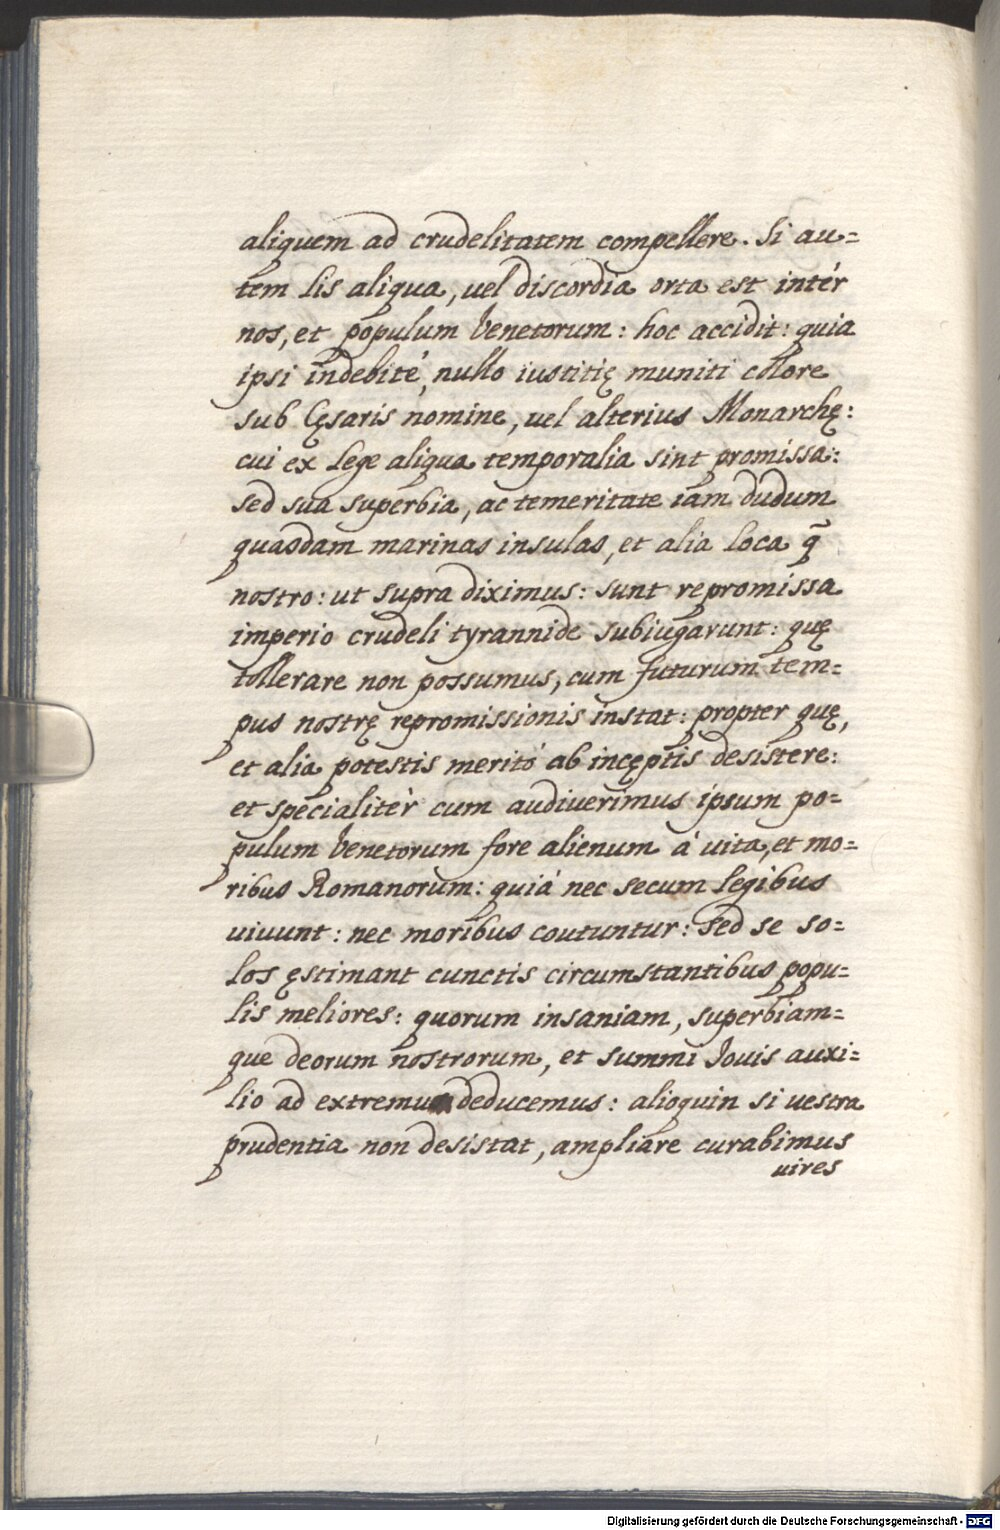 aliquem ad crudelitatem compellere. Si au=
tem lis aliqua, vel discordia orta est intér
nos, et populum Venetorum: hoc accidit: quia
ipsi indebité, nullo iustitię muniti collore
sub Cęsaris nomine, vel alterius Monarchę:
cui ex lege aliqua temporalia sint promissa:
sed sua superbia, ac temeritate iam dudum
quasdam marinas insulas, et alia loca q̃
nostro: ut supra diximus: sunt repromissa
imperio crudeli tyrannide subiugarunt: quę
tollerare non possumus, cum futurum tem=
pus nostrę repromissionis instat: propter quę,
et alia potestis meritò ab incęptis desistere:
et specialitèr cum audiverimus ipsum po=
pulum Venetorum fore alienum à vita, et mo=
ribus Romanorum: quià nec secum legibus
uiuunt: nec moribus coutuntur: sed se so=
los ęstimant cunctis circumstantibus popu=
lis meliores: quorum insaniam, superbiam=
que deorum nostrorum, et summi Iouis auxi=
lio ad extremum deducemus: alioquin si uestra
prudentia non desistat, ampliare curabimus
uires
Digitalisierung gefördert durch die Deutsche Forschungsgemeinschaft - DFG